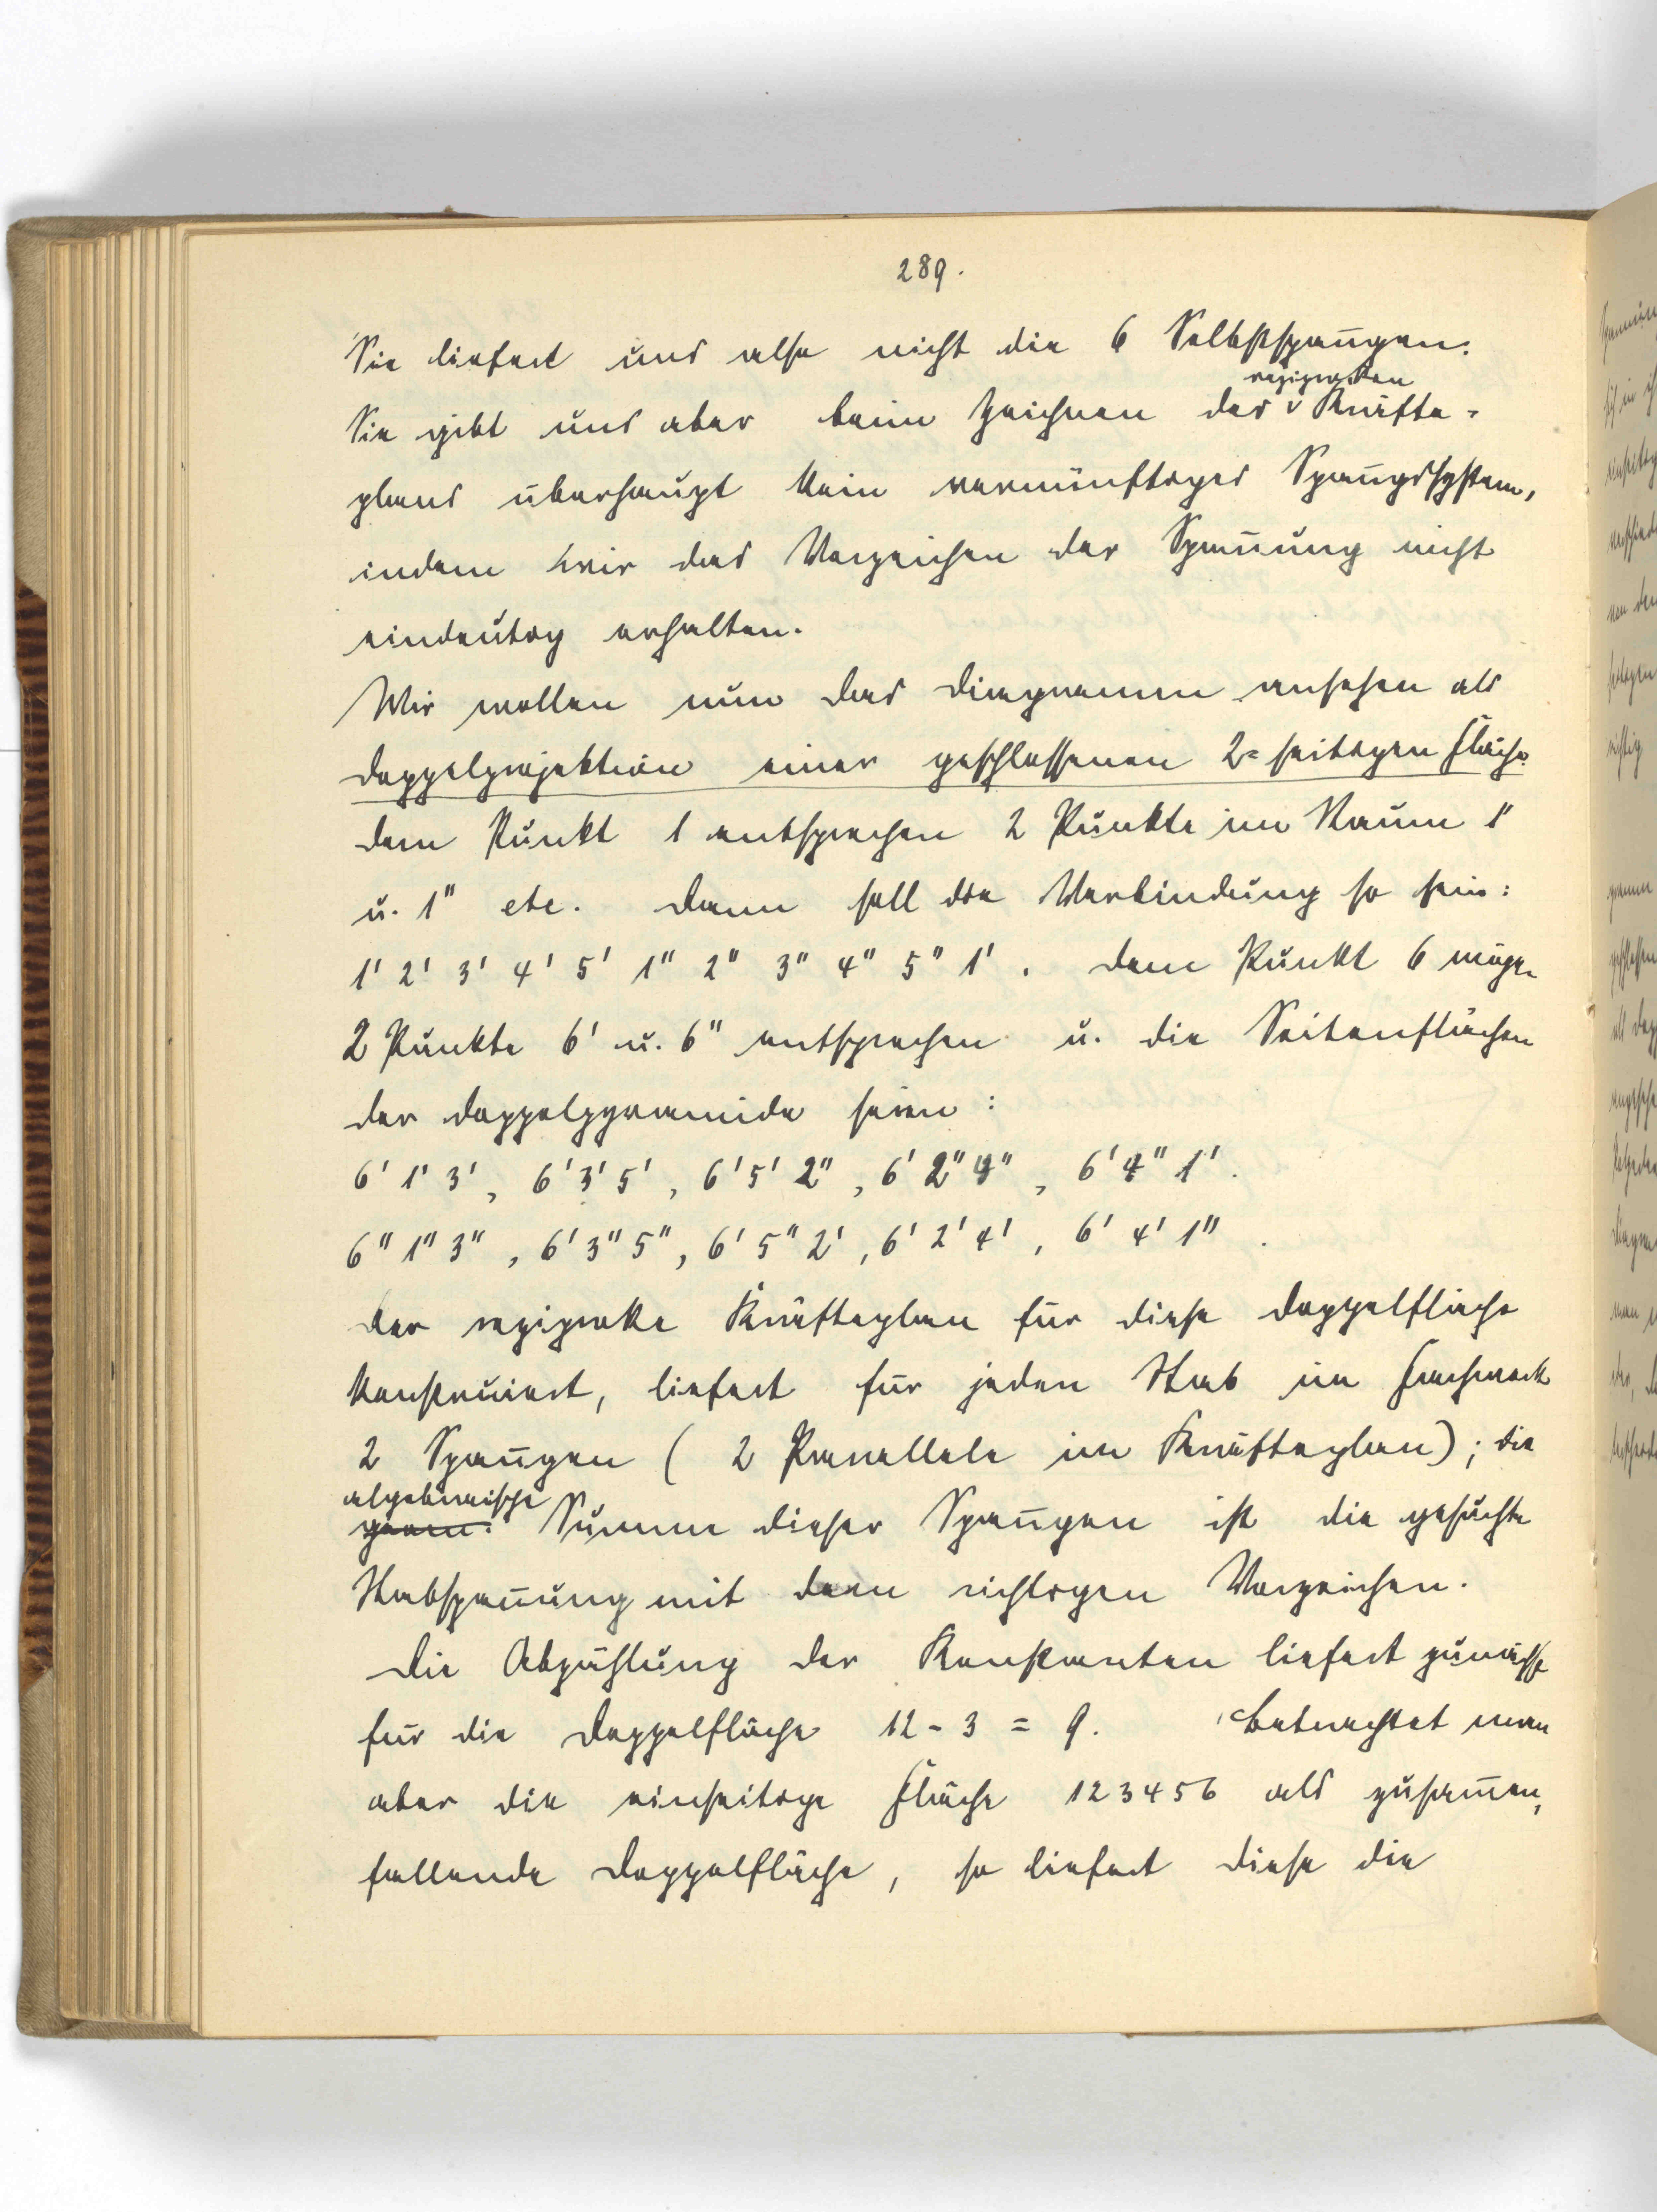 289.
Sie liefert uns also nicht die 6 Selbstspan̄gen.
reziproken
Sie gibt uns aber beim Zeichnen des v Kräfte=
plans überhaupt kein vernünftiges Span̄gssystem,
indem wir das Vorzeichen der Span̄ung nicht
eindeutig erhalten.
Wir wollen nun das Diagramm ansehen als
Doppelprojektion einer geschlossenen 2=seitigen Fläche.
Dem Punkt 1 entsprechen 2 Punkte im Raum 1'
u. 1" etc. Dann soll die Verbindung so sein:
1' 2' 3' 4' 5' 1" 2" 3" 4" 5" 1'. Dem Punkt 6 mögen
2 Punkte 6' u. 6" entsprechen u. die Seitenflächen
der Doppelpyramide seien:
6' 1' 3', 6' 3' 5', 6' 5' 2", 6' 2" 4", 6' 4" 1'.
6" 1" 3", 6' 3" 5", 6' 5" 2', 6' 2' 4', 6' 4' 1".
Der reziproke Kräfteplan für diese Doppelfläche
konstruiert, liefert für jeden Stab im Fachwerk
2 Span̄gen (2 Parallele im Kräfteplan); die
algebraische
geom. Summe dieser Span̄gen ist die gesuchte
Stabspan̄ung mit dem richtigen Vorzeichen.
Die Abzählung der Konstanten liefert zunächst
für die Doppelfläche 12 - 3 = 9. Betrachtet man
aber die einseitige Fläche 123456 als zusam̄en,
fallende Doppelfläche, so liefert diese die